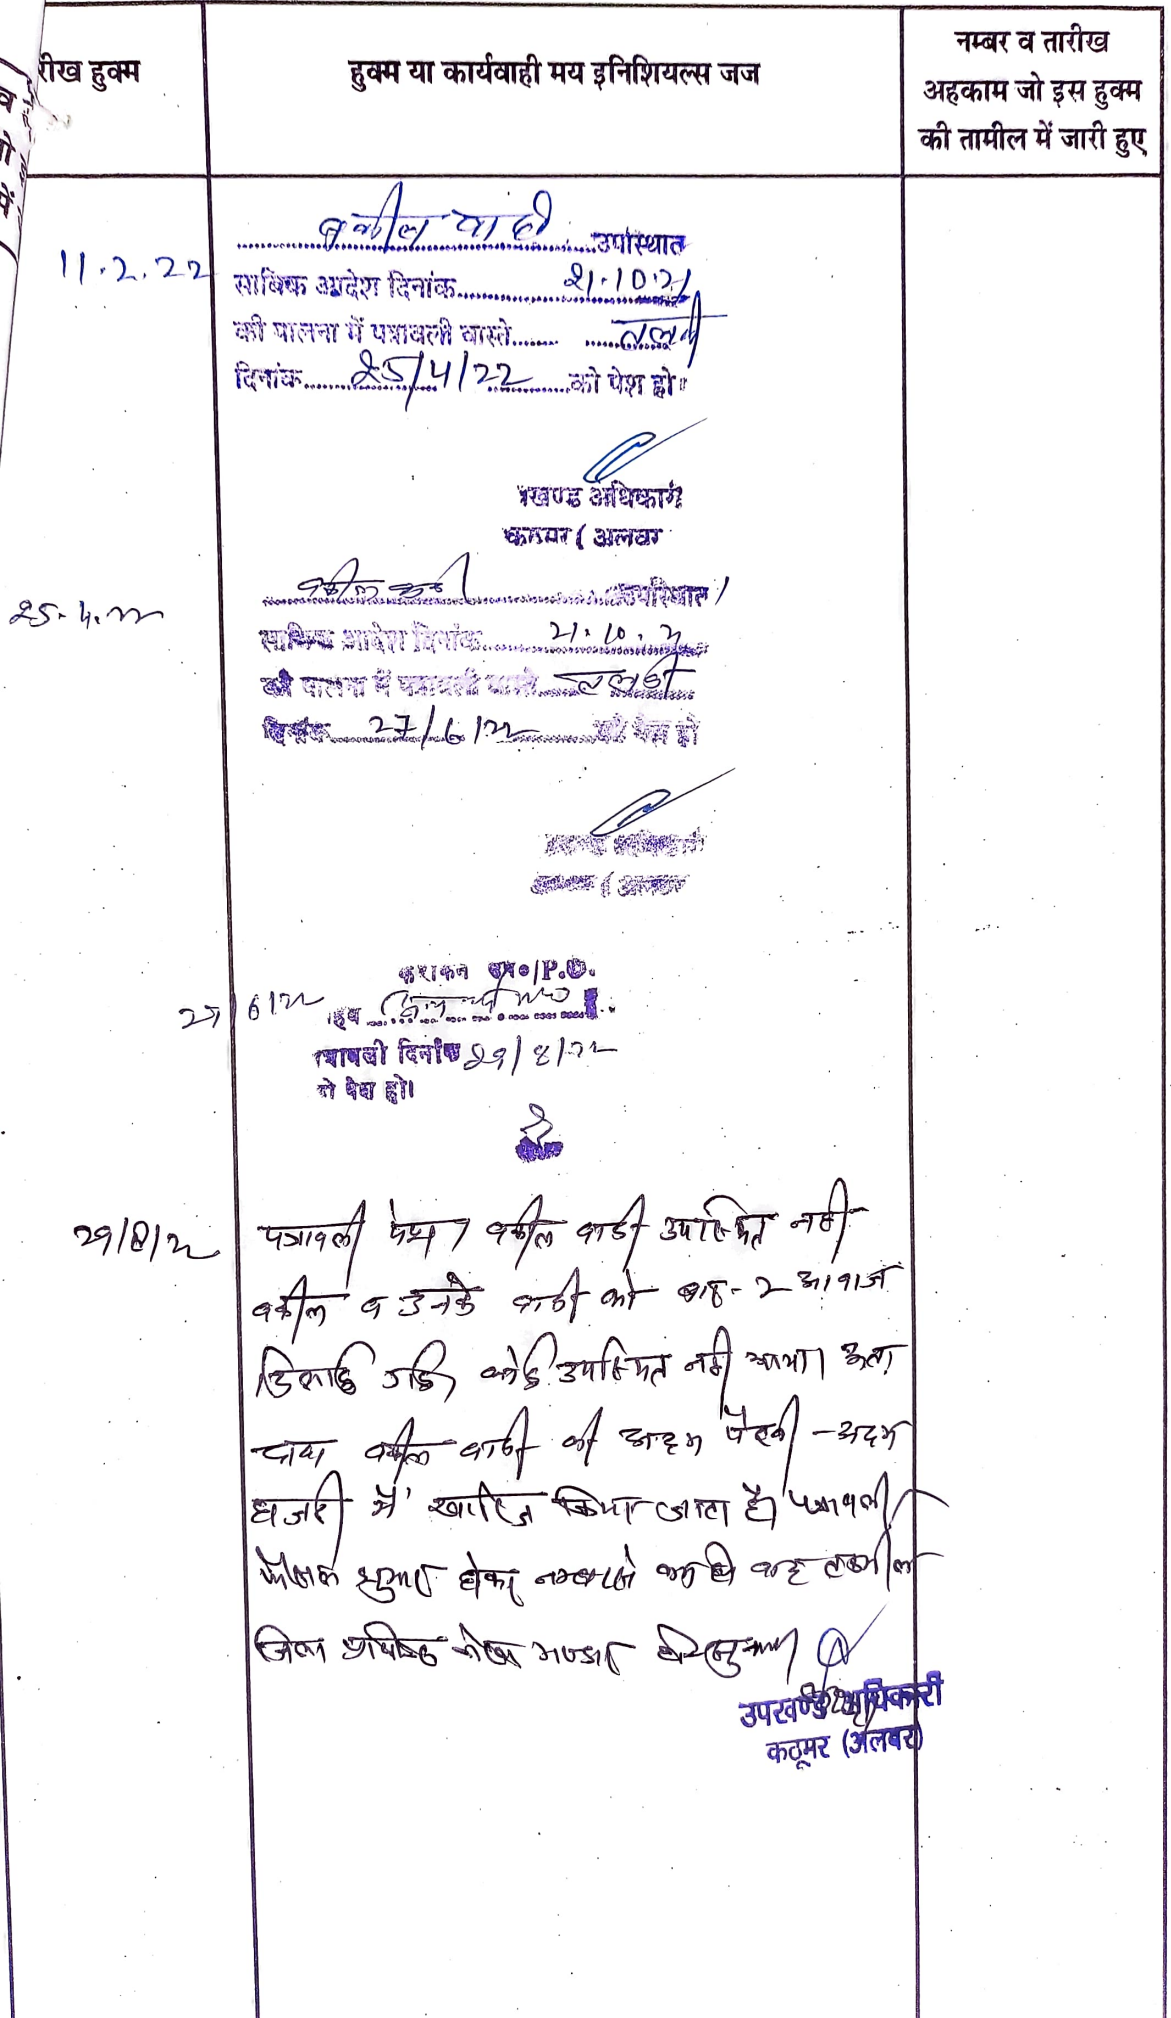 रीख हुक्म
हुक्म या कार्यवाही मय इनिशियल्स जज
नम्बर व तारीख
अहकाम जो इस हुक्म
की तामील में जारी हुए
वकील वादी उपस्थित
11.2.22
साबिक आदेश दिनांक 21.10.21
की पालना में पत्रावली वास्ते तलबी
दिनांक 25/4/22 को पेश हो।
खण्ड अधिकारी
कठूमर (अलवर
25.4.22
वकील वादी उपस्थित
साबिक आदेश दिनांक 21.10.21
की पालना में पत्रावली वास्ते तलबी
दिनांक 27/6/22 को पेश हो
27/6/22
P.O.
त्रावली दिनांक 29/8/22
को पेश हो।
29/8/22
पत्रावली पेश। वकील वादी उपस्थित नही
वकील व उनके वादी को बार-2 आवाज
दिलाई गई, कोई उपस्थित नही आया। अतः
वाद वकील वादी की अदम पैरवी - अदम
हाजरी में खारिज किया जाता है। पत्रावली
फैसल शुमार होकर नम्बर से कम हो बाद तकमील
जिला अभिलेख
उपखण्ड अधिकारी
कठूमर (अलवर)